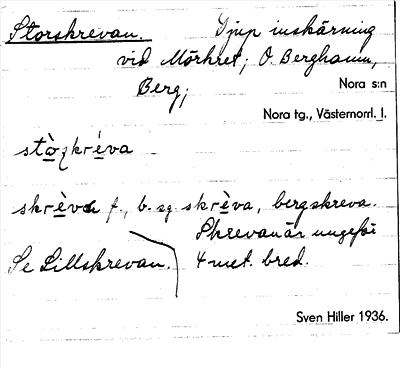 Storskrevan. Djup inskärning
vid Mörkret, O. Berghamn,
Berg; Nora s:n
Nora tg., Västernorrl. l.
skrèva f., b. sg. skrèva, bergskreva.
Skrevan är ungefär
Se Lillskrevan. 4 met. bred.
Sven Hiller 1936.